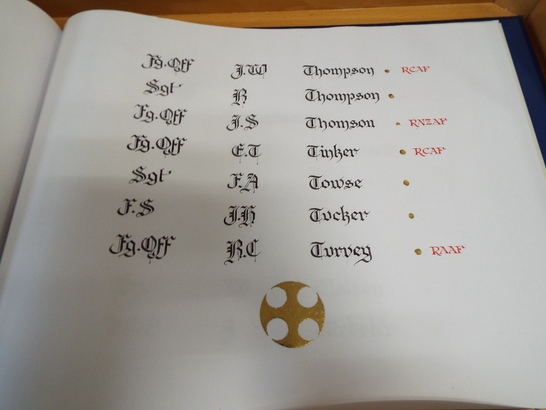 Fg.Off J.W Thompson RCAF
Sgt R Thompson
Fg.Off J.S Thomson RNZAF
Fg.Off E.T Tinker RCAF
Sgt F.A Towse
F.S J.H Tucker
Fg.Off R.C Turvey RAAF